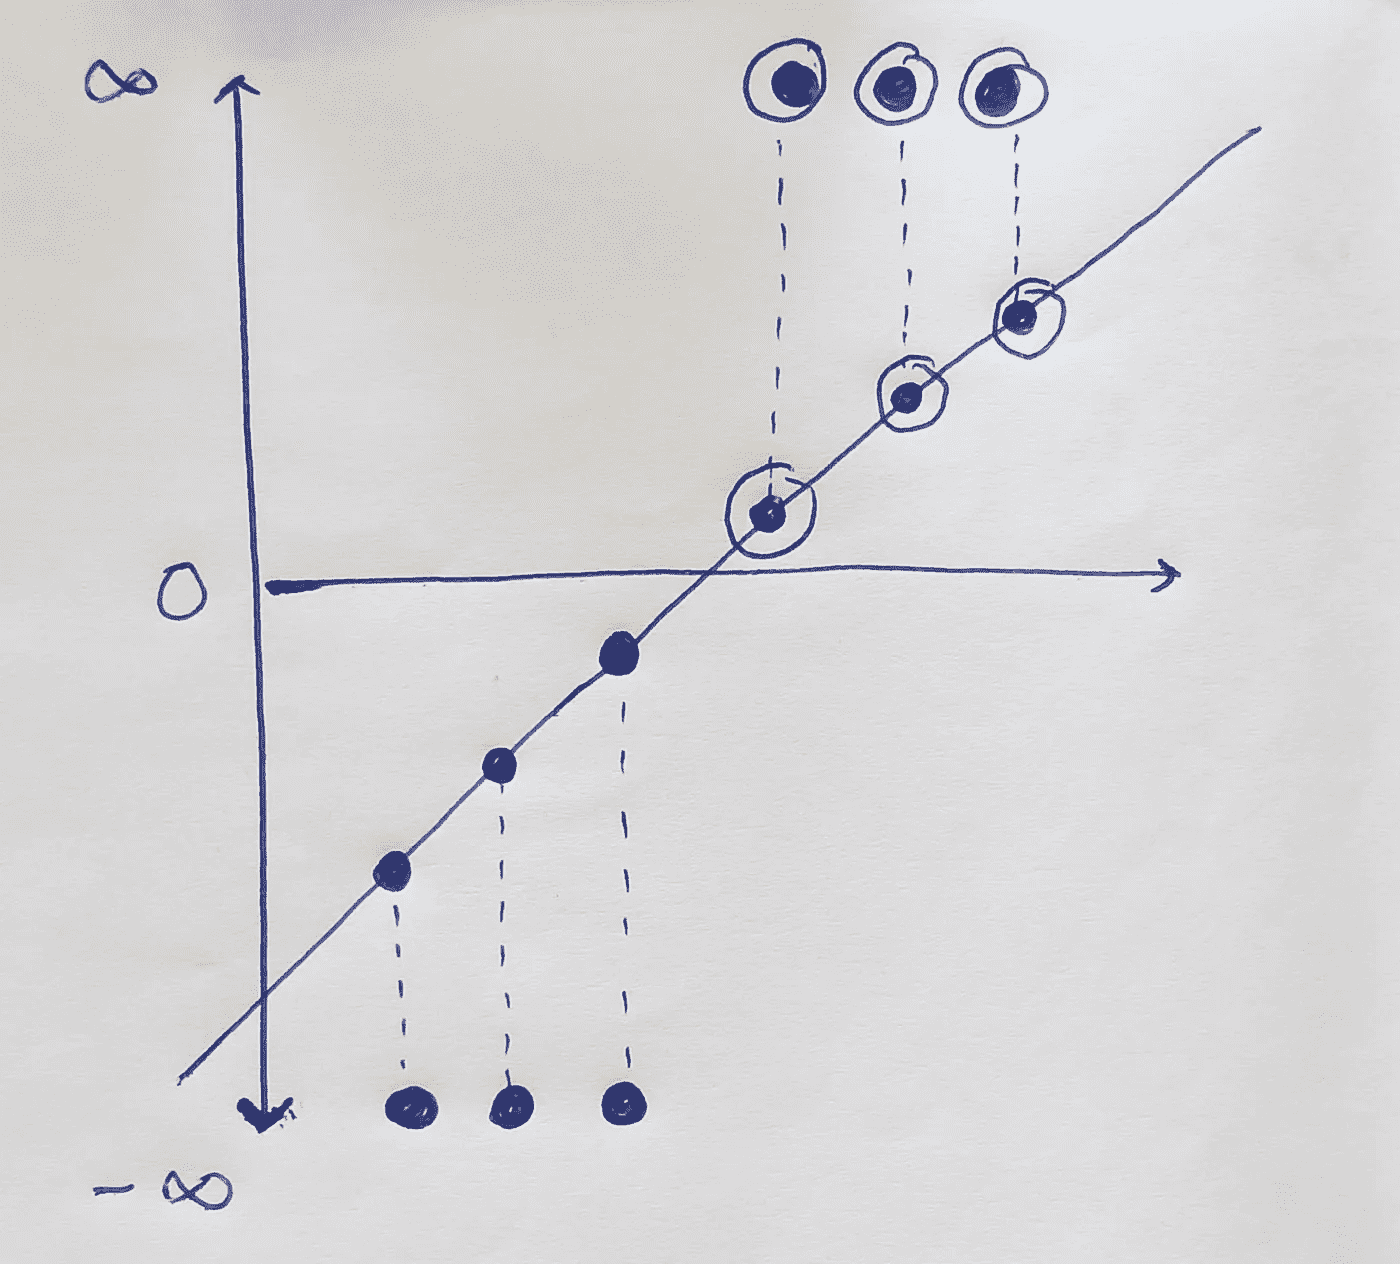 ∞
0
- ∞